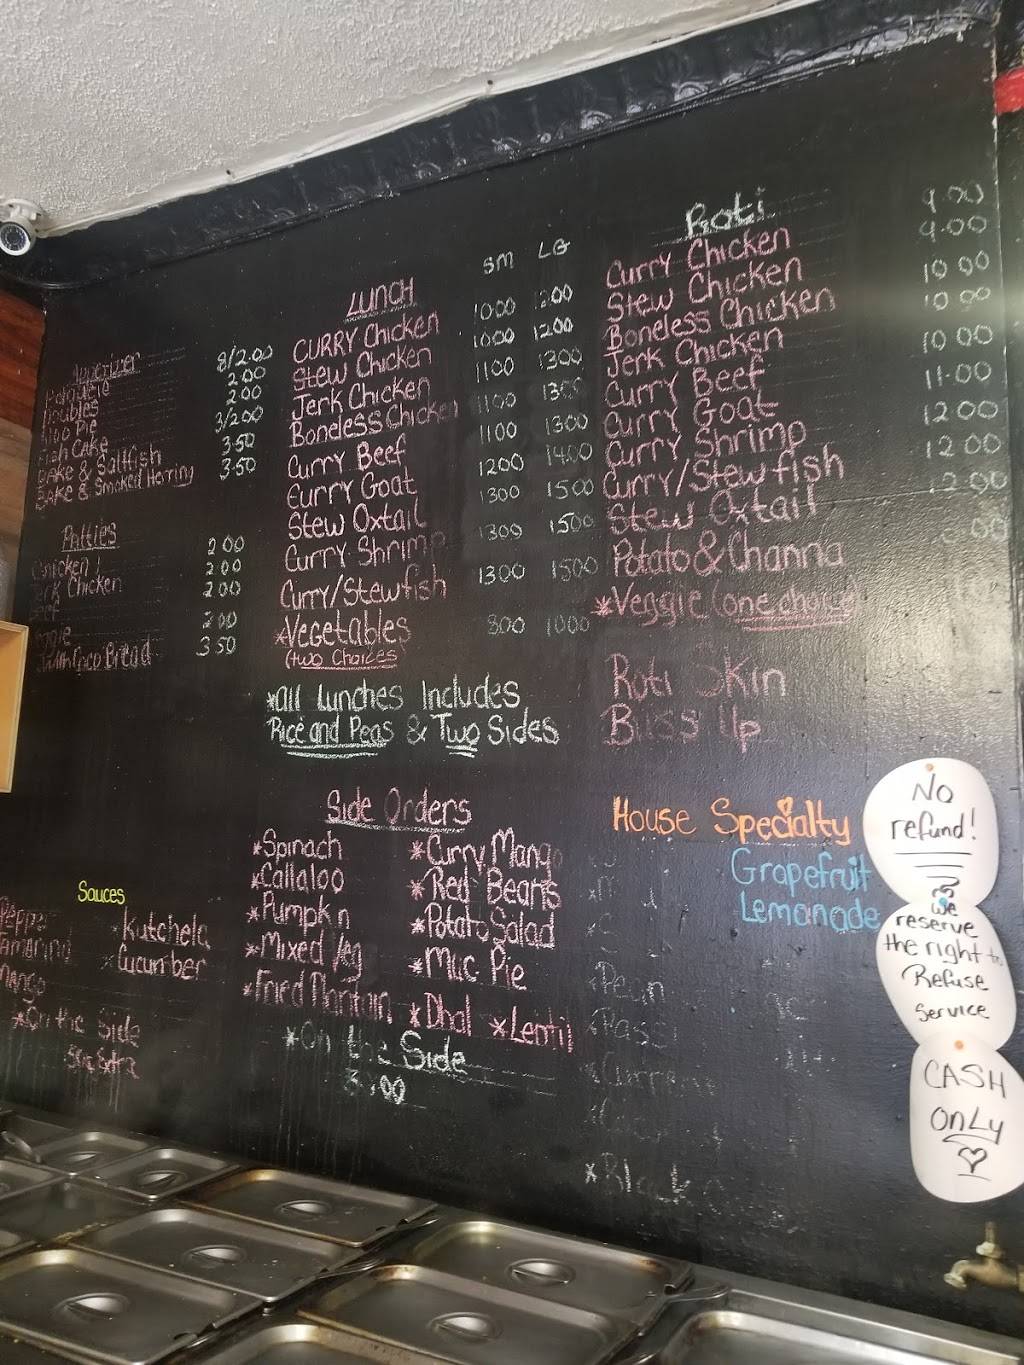 Appetizer
8/2.00
Doubles 2.00
Aloo Pie 2.00
Fish Cake 3/2.00
Bake & Saltfish 3.50
Bake & Smoked Herring 3.50
Patties
Chicken 2.00
Jerk Chicken 2.00
Beef 2.00
Veggie 2.00
With Coco Bread 3.50
Sauces
Pepper *Kutchela
Tamarind *Cucumber
Mango
*On the Side
LUNCH SM LG
CURRY Chicken 10.00 12.00
Stew Chicken 10.00 12.00
Jerk Chicken 11.00 13.00
Boneless Chicken 11.00 13.00
Curry Beef 11.00 13.00
Curry Goat 12.00 14.00
Stew Oxtail 13.00 15.00
Curry Shrimp 13.00 15.00
Curry/Stew fish 13.00 15.00
*Vegetables 8.00 10.00
(two Choices)
*all Lunches Includes
Rice and Peas & Two Sides
Side Orders
*Spinach *Curry Mango
*Callaloo *Red Beans
*Pumpkin *Potato Salad
*Mixed Veg *Mac Pie
*Fried Plantain *Dhal *Lentil
*On the Side
3.00
Roti
Curry Chicken 9.00
Stew Chicken 9.00
Boneless Chicken 10.00
Jerk Chicken 10.00
Curry Beef 10.00
Curry Goat 11.00
Curry Shrimp 12.00
Curry/Stew fish 12.00
Stew Oxtail 12.00
Potato & Channa
*Veggie (one choice)
Roti Skin
Buss Up
House Specialty
Grapefruit
Lemonade
No
refund!
We
reserve
the right to
Refuse
Service
CASH
ONLY